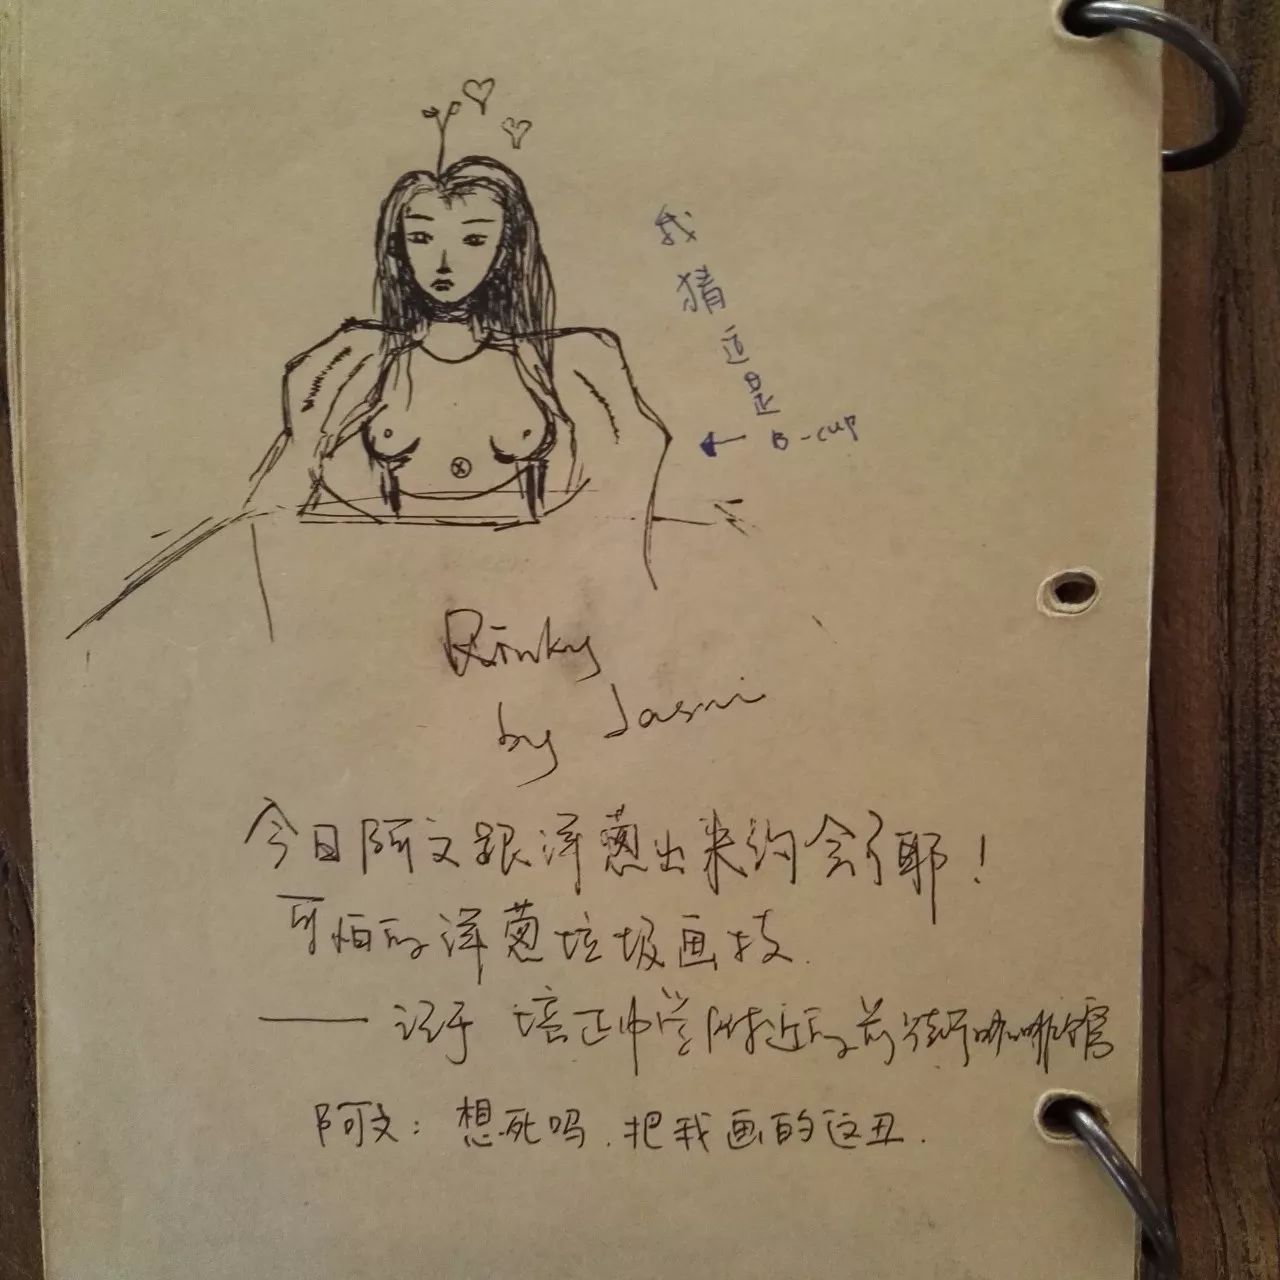 我猜这是
B-cup
Rinky
by Jasmi
今日阿文跟洋葱出来约会了耶!
可怕的洋葱垃圾画技.
——记于 培正中学附近的前街咖啡馆
阿文: 想死吗.把我画的这丑.